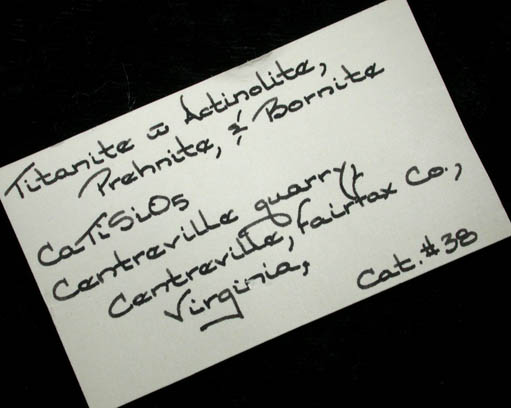 Titanite w̄ Actinolite,
Prehnite, & Bornite
CaTiSiO5
Centreville quarry,
Centreville, Fairfax Co.,
Virginia,
Cat.#38